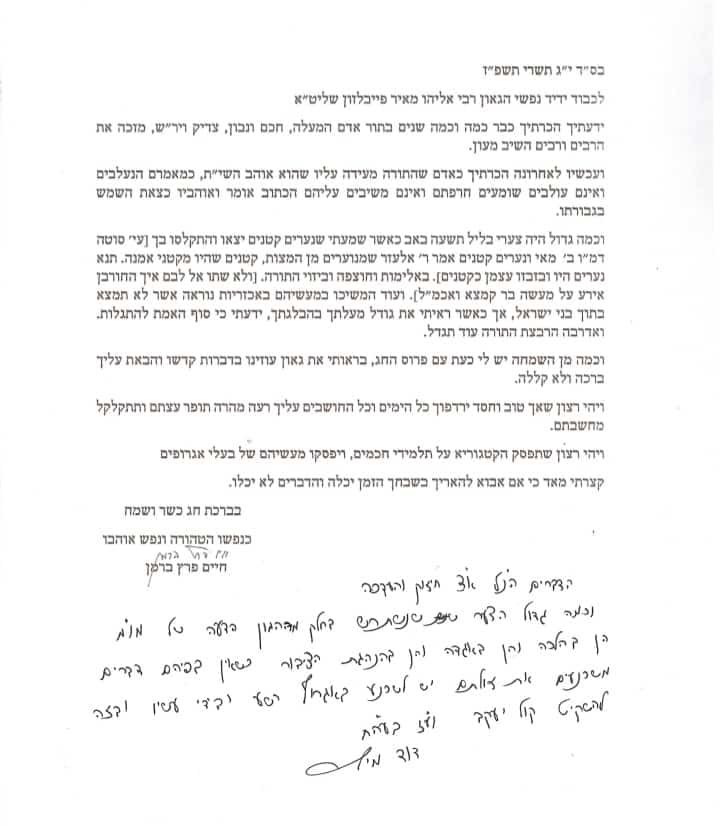 בס״ד י״ג תשרי תשפ״ז
לכבוד ידיד נפשי הגאון רבי אליהו מאיר פייבלזון שליט״א
ידעתיך הכרתיך כבר כמה וכמה שנים בתור אדם המעלה, חכם ונבון, צדיק ויר״ש, מזכה את
הרבים ורבים השיב מעון.
ועכשיו לאחרונה הכרתיך כאדם שהתורה מעידה עליו שהוא אוהב השי״ת, כמאמרם הנעלבים
ואינם עולבים שומעים חרפתם ואינם משיבים עליהם הכתוב אומר ואוהביו כצאת השמש
בגבורתו.
וכמה גדול היה צערי בליל תשעה באב כאשר שמעתי שנערים קטנים יצאו והתקלסו בך [עי׳ סוטה
דמ״ו ב׳ מאי ונערים קטנים אמר ר׳ אלעזר שמנוערים מן המצות, קטנים שהיו מקטני אמנה. תנא
נערים היו ובזבזו עצמן כקטנים]. באלימות וחוצפה וביזוי התורה. [ולא שתו אל לבם איך החורבן
אירע על מעשה בר קמצא ואכמ״ל]. ועוד המשיכו במעשיהם באכזריות נוראה אשר לא תמצא
בתוך בני ישראל, אך כאשר ראיתי את גודל מעלתך בהבלגתך, ידעתי כי סוף האמת להתגלות.
ואדרבה הרבצת התורה עוד תגדל.
וכמה מן השמחה יש לי כעת עם פרוס החג, בראותי את גאון עוזינו בדברות קדשו והבאת עליך
ברכה ולא קללה.
ויהי רצון שאך טוב וחסד ירדפוך כל הימים וכל החושבים עליך רעה מהרה תופר עצתם ותתקלקל
מחשבתם.
ויהי רצון שתפסק הקטגוריא על תלמידי חכמים, ויפסקו מעשיהם של בעלי אגרופים
קצרתי מאד כי אם אבוא להאריך בשבחך הזמן יכלה והדברים לא יכלו.
בברכת חג כשר ושמח
כנפשו הטהורה ונפש אוהבו
חיים פרץ ברמן
הדברים הנ״ל
וכמה גדול הצער שנשתרש בחלק מההמון הדעה של
הן בהלכה והן באגדה והן בהנהגת הציבור כשאין בפיהם דברים
משכנעים את זולתם יש לשכנע באגרוף רשע ובידי עשיו ובזה
להשקיט קול יעקב
דוד